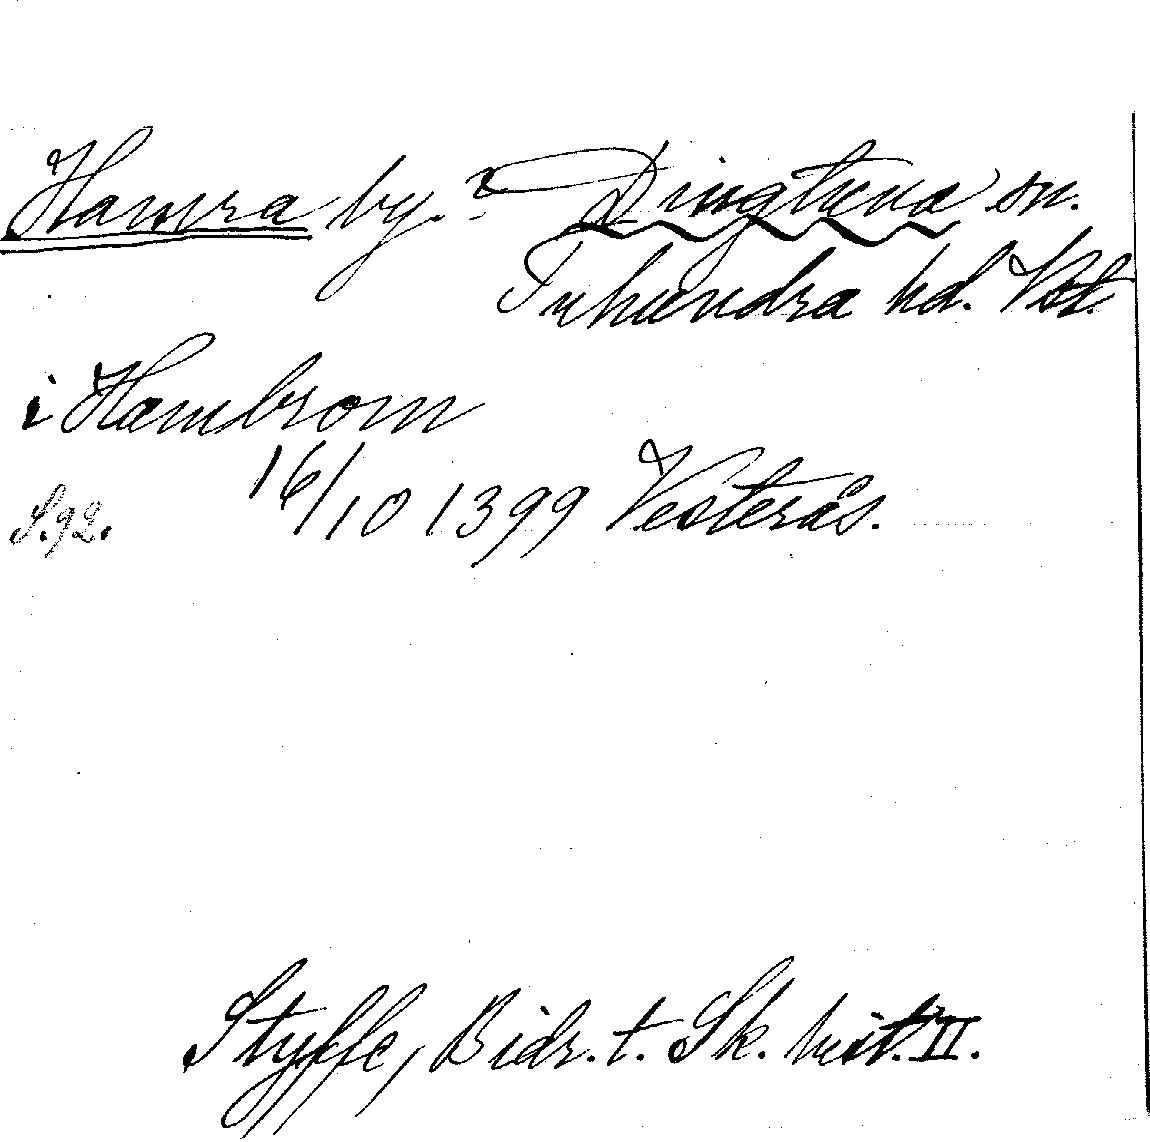 Hamra by.? Dingtuna sn.
Tuhundra hd. Vstl.
i Hambrom
16/10 1399 Vesterås.
S.92.
Styffe, Bidr. t. Sk. hist. II.